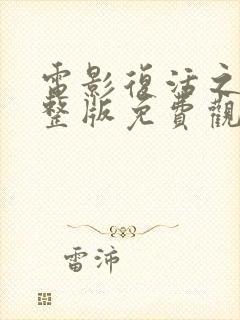 電影復活之
整版免費觀
雷沛